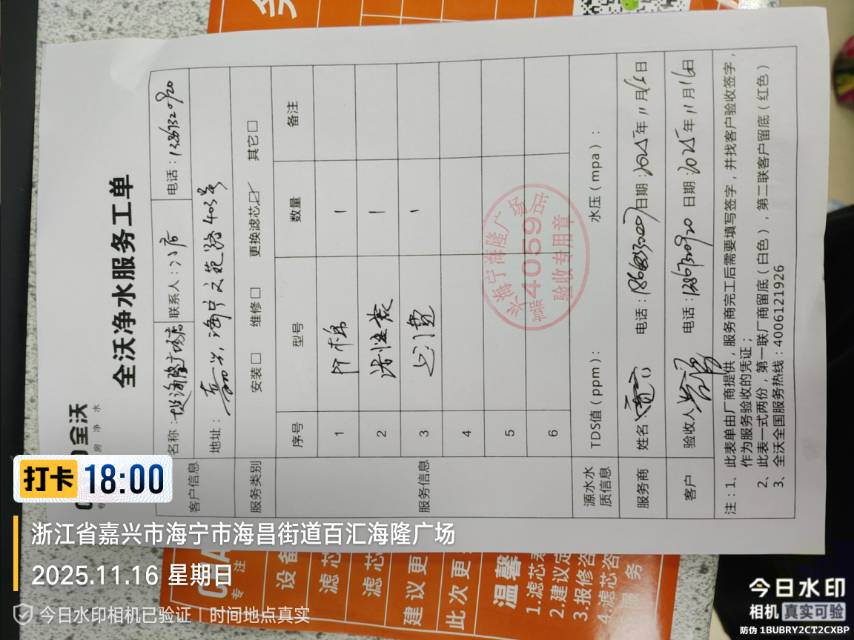 全沃
全沃净水服务工单
客户信息
名称：
联系人：
电话：
地址：
服务类别
安装□ 维修□ 更换滤芯☑ 其它□
服务信息
序号 型号 数量 备注
1 PP棉 1
2 活性炭 1
3 1
4
5
6
兴海宁海隆广场店
4059
验收专用章
源水水质信息
TDS值（ppm）：
水压（mpa）：
服务商
姓名
电话：
日期：2025年11月16日
客户
验收人
电话：
日期：2025年11月16日
注：1、此表单由厂商提供，服务商完工后需要填写签字，并找客户验收签字，
作为服务验收的凭证；
2、此表一式两份，第一联厂商留底（白色），第二联客户留底（红色）
3、全沃全国服务热线：4006121926
专注
设备
滤芯
滤芯
建议更
此次更
温馨
1.滤芯
2.建议定
3.报修咨
4.滤芯咨
服务
打卡 18:00
浙江省嘉兴市海宁市海昌街道百汇海隆广场
2025.11.16 星期日
今日水印相机已验证 时间地点真实
今日水印
相机 真实可验
防伪 1BUBRY2CT2CXBP